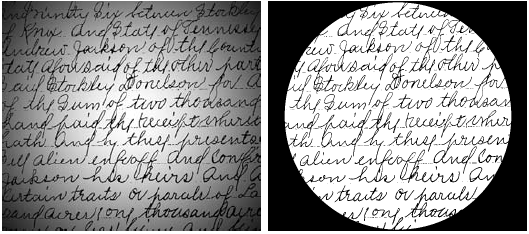 and ninty Six between Stockley
of Knox. And State of Tennissy
Andrew Jackson of the County
tate Aforesaid of the other part
said Stockley Donelson for A
of the Sum of two thousand
hand paid the receipt wher
rath And by these presents
rell alien enfeoff And Conf
Jackson his heirs And A
certain traits or parcels of La
sand Acres (ong thousand acre
ty Six between Stockley
Knox. And State of Ten
rew Jackson of the Coun
Aforesaid of the other p
id Stockley Donelson for
the Sum of two thousan
and paid the receipt wh
th And by these presen
alien enfeoff And Con
son his heirs And
n traits or parcels
Acres (ong thous